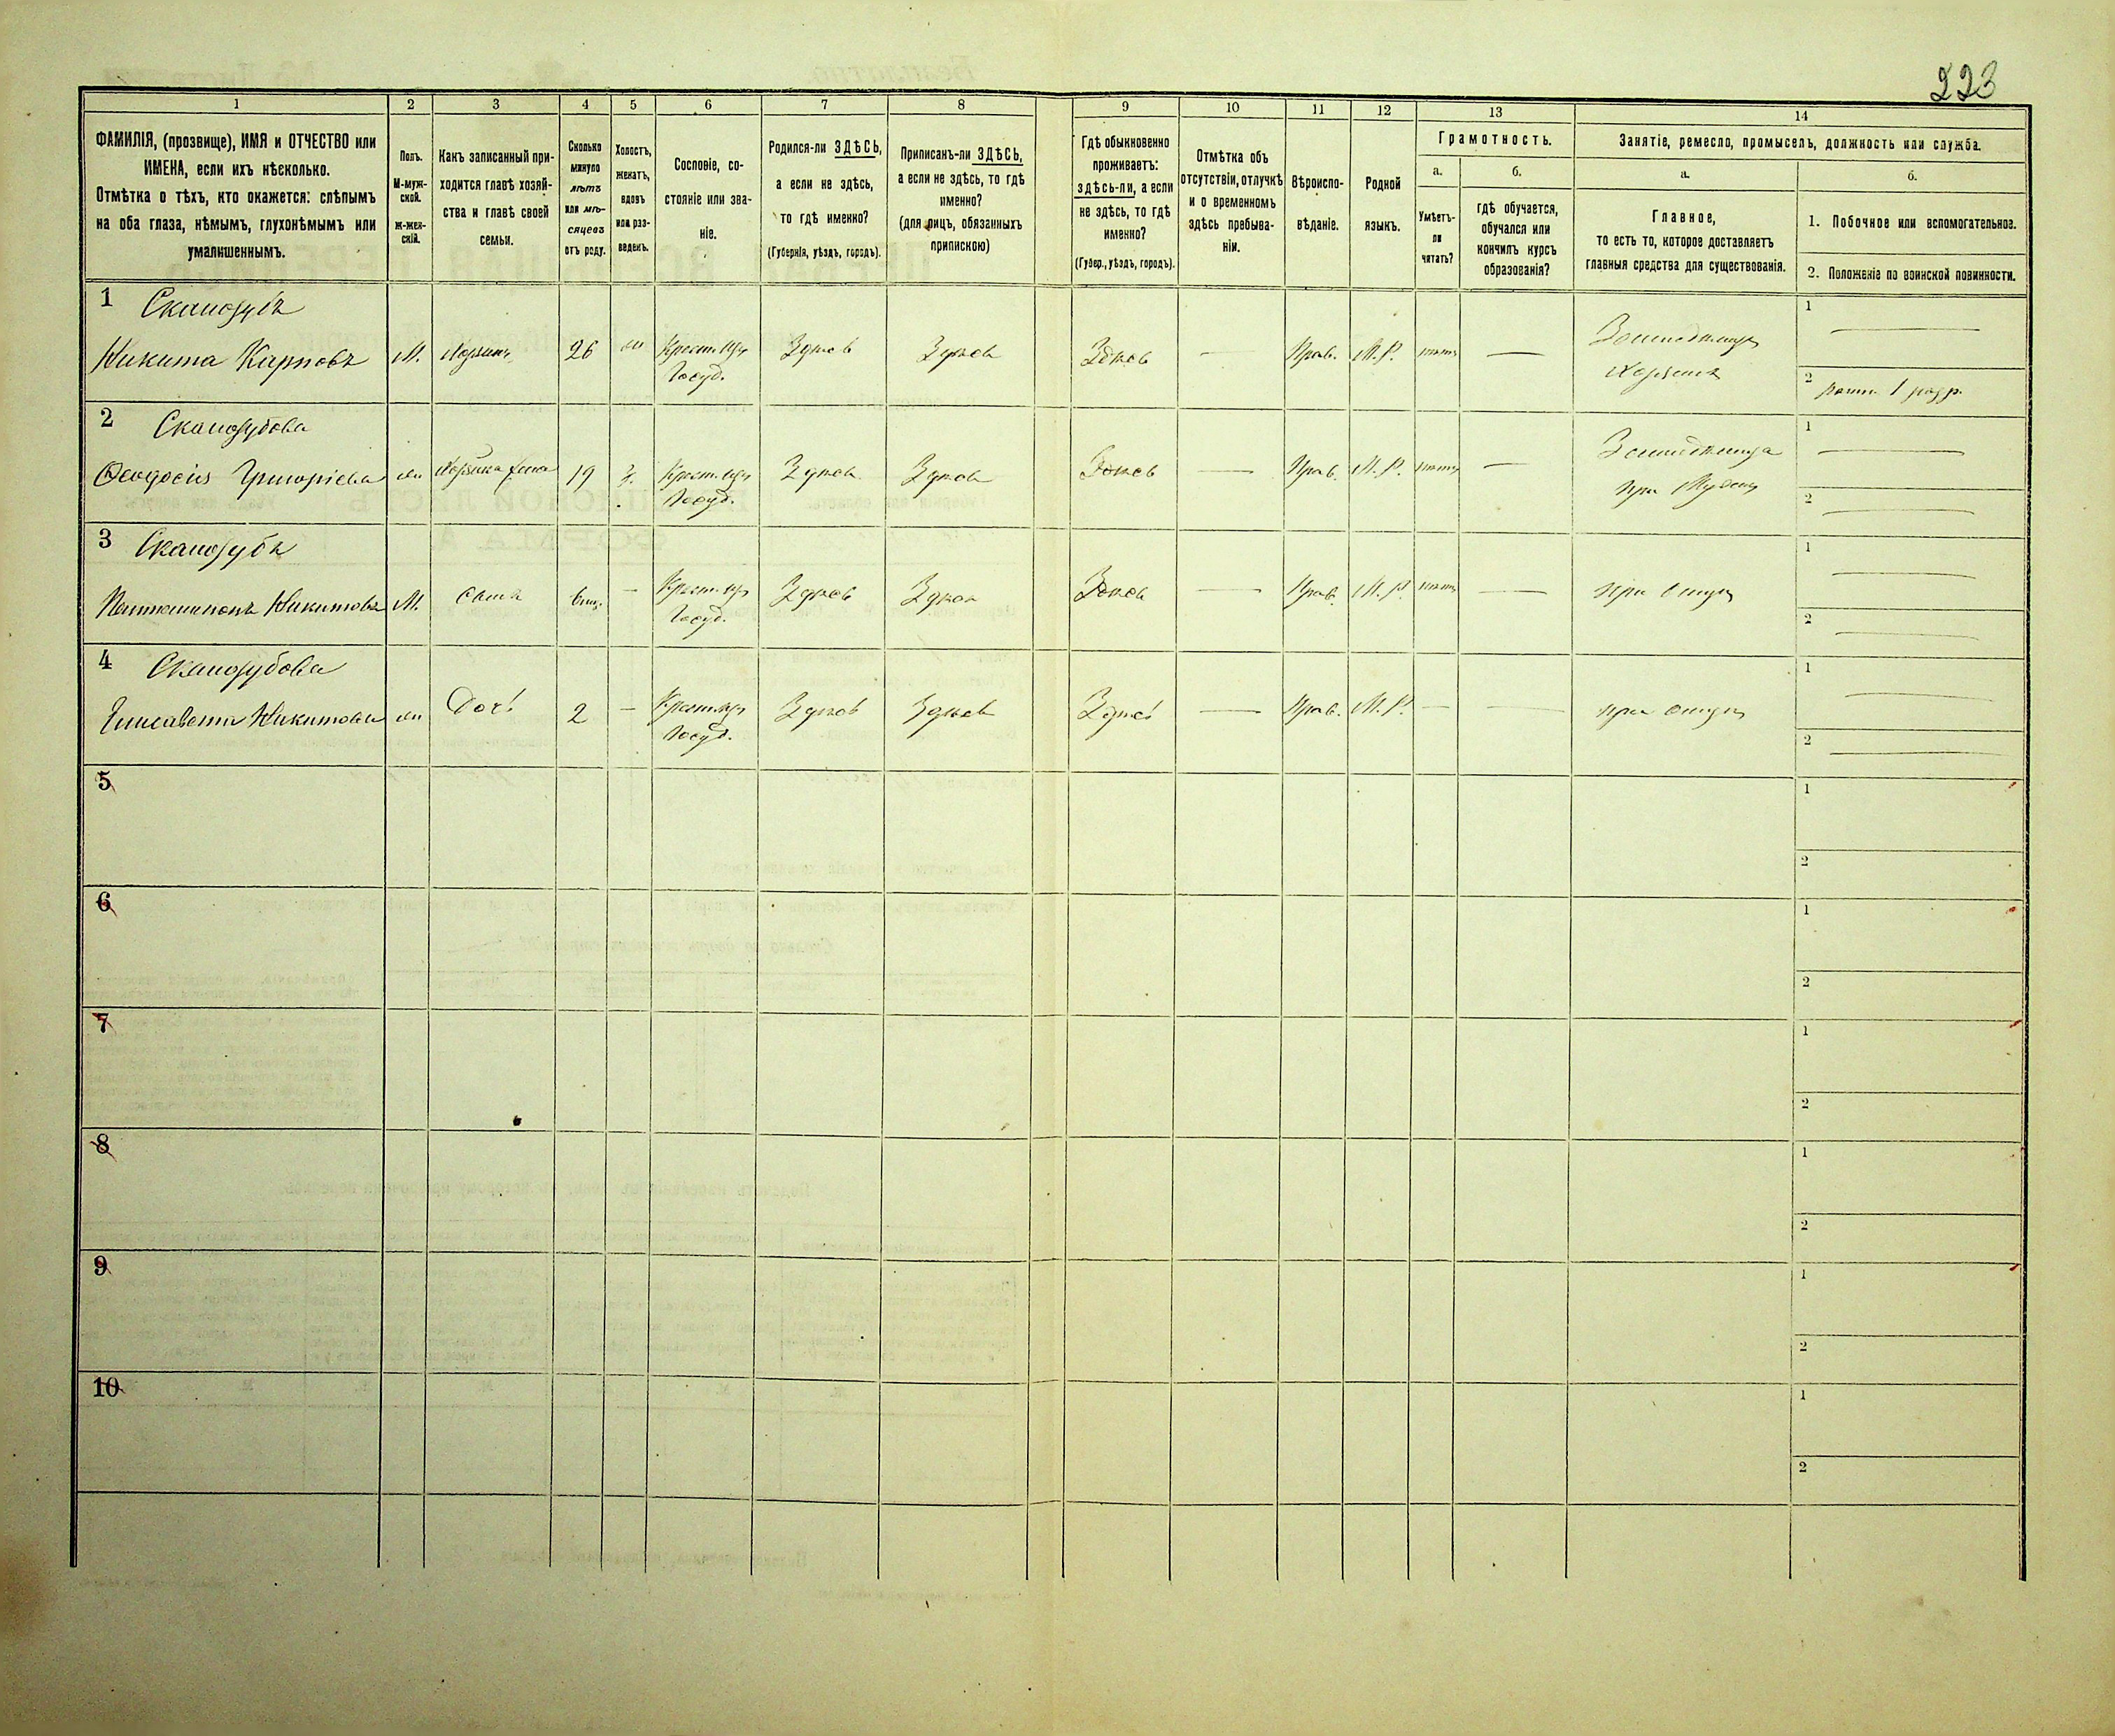 223
1
2
3
4
5
6
7
8
9
10
11
12
13
14
ФАМИЛІЯ, (прозвище), ИМЯ и ОТЧЕСТВО или
ИМЕНА, если ихъ нѣсколько.
Отмѣтка о тѣхъ, кто окажется: слѣпымъ
на оба глаза, нѣмымъ, глухонѣмымъ или
умалишеннымъ.
Полъ.
М-муж-
ской.
Ж-жен-
скій.
Какъ записанный при-
ходится главѣ хозяй-
ства и главѣ своей
семьи.
Сколько
минуло
лѣтъ
или мѣ-
сяцевъ
отъ роду.
Холостъ,
женатъ,
вдовъ
или раз-
веденъ.
Сословіе, со-
стояніе или зва-
ніе.
Родился-ли ЗДѢСЬ,
а если не здѣсь,
то гдѣ именно?
(Губернія, уѣздъ, городъ).
Приписанъ-ли ЗДѢСЬ,
а если не здѣсь, то гдѣ
именно?
(для лицъ, обязанныхъ
припискою)
Гдѣ обыкновенно
проживаетъ:
здѣсь-ли, а если
не здѣсь, то гдѣ
именно?
(Губер., уѣздъ, городъ).
Отмѣтка объ
отсутствіи, отлучкѣ
и о временномъ
здѣсь пребыва-
ніи.
Вѣроиспо-
вѣданіе.
Родной
языкъ.
Грамотность.
а.
б.
Умѣетъ-
ли
читать?
гдѣ обучается,
обучался или
кончилъ курсъ
образованія?
Занятіе, ремесло, промыселъ, должность или служба.
а.
б.
Главное,
то есть то, которое доставляетъ
главныя средства для существованія.
1. Побочное или вспомогательное.
2. Положеніе по воинской повинности.
1 Скалозубъ
Никита Карповъ М. Хозяинъ 26 Крест. изъ Госуд. Здѣсь Здѣсь Здѣсь — Прав. М.Р. нѣтъ — Земледѣлецъ Хозяинъ
1 —
2 ратн. 1 разр.
2 Скалозубова
Феодосія Григоріева 19 З. Крест. изъ Госуд. Здѣсь Здѣсь Здѣсь — Прав. М.Р. нѣтъ — Земледѣлица при Мужѣ
1 —
2 —
3 Скалозубъ
Пантелимонъ Никитовъ М. Сынъ — Крест. изъ Госуд. Здѣсь Здѣсь Здѣсь — Прав. М.Р. нѣтъ — при отцѣ
1 —
2 —
4 Скалозубова
Елисавета Никитова Дочь 2 — Крест. изъ Госуд. Здѣсь Здѣсь Здѣсь — Прав. М.Р. — — при отцѣ
1 —
2 —
5
1
2
6
1
2
7
1
2
8
1
2
9
1
2
10
1
2